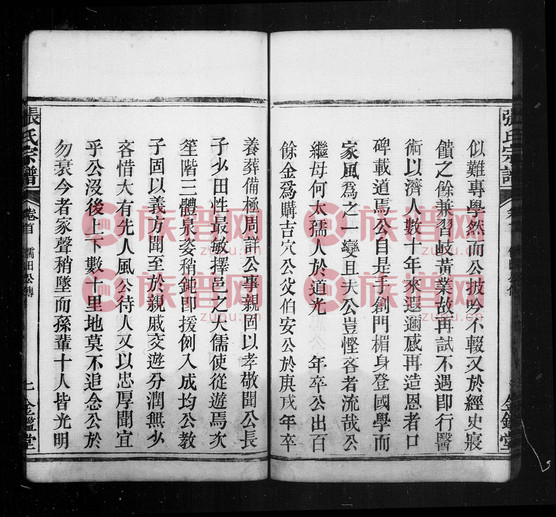 似難專學然而公披吟不輟又於經史寢
饋之餘兼習岐黃業故再試不遇即行醫
術以濟人數十年來遐邇感再造恩者口
碑載道焉公自是手創門楣身登國學而
家風為之一變且夫公豈慳吝者流哉公
繼母何太孺人於道光 年卒公出百
餘金為購吉穴公父伯安公於庚戌年卒
養葬備極周詳公事親固以孝敬聞公長
子少田性最敏擇邑之大儒使從遊焉次
笙階三體泉姿稍鈍即援例入成均公教
子固以義方聞至於親戚交遊分潤無少
吝惜大有先人風公待人又以忠厚聞宜
乎公沒後上下數十里地莫不追念公於
勿衰今者家聲稍墜而孫輩十人皆光明
張氏宗譜
卷首
儒田公傳
金鑑堂
族普网
zupu.cn